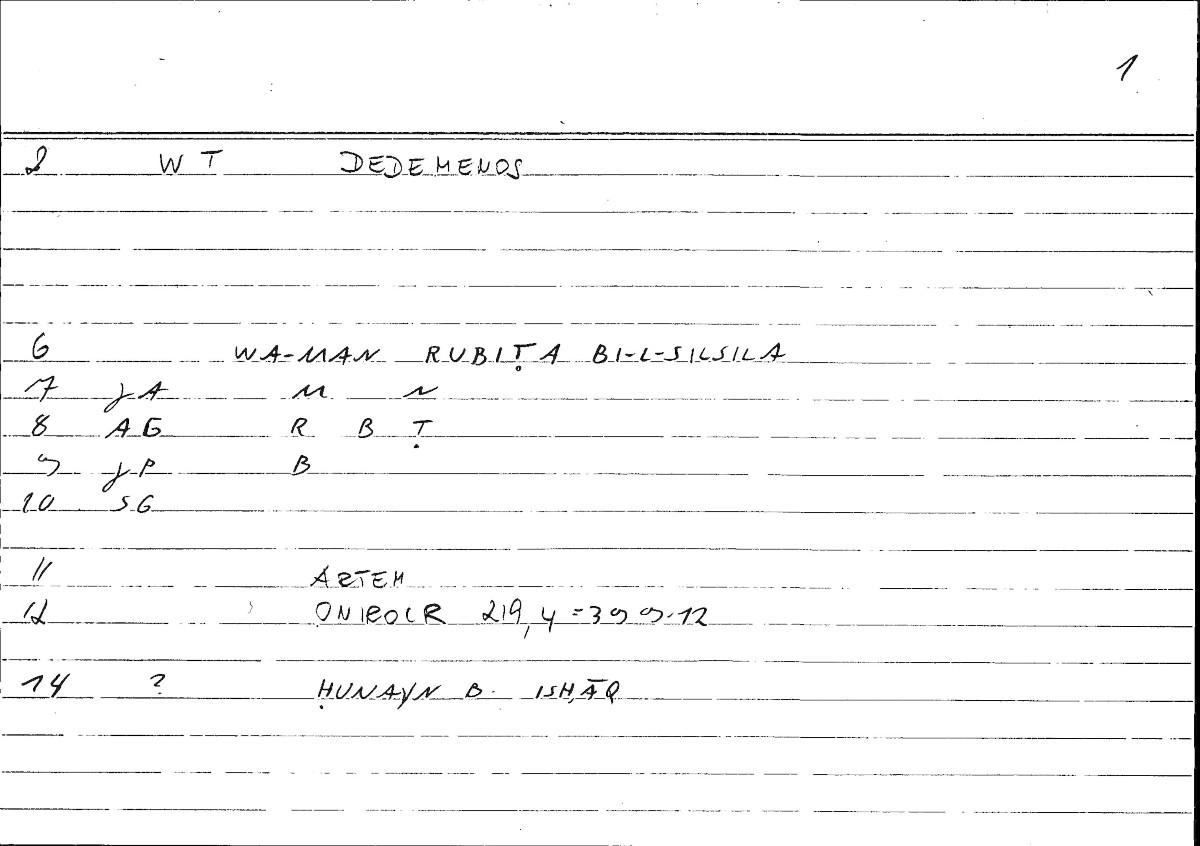 1
2 WT DEDEMENOS
6 WA-MAN RUBIṬA BI-L-SILSILA
7 JA M N
8 AG R B Ṭ
9 JP B
10 SG
11 ARTEM
12 ONIROCR 219,4 = 399.12
14 ? ḤUNAYN B. ISḤĀQ